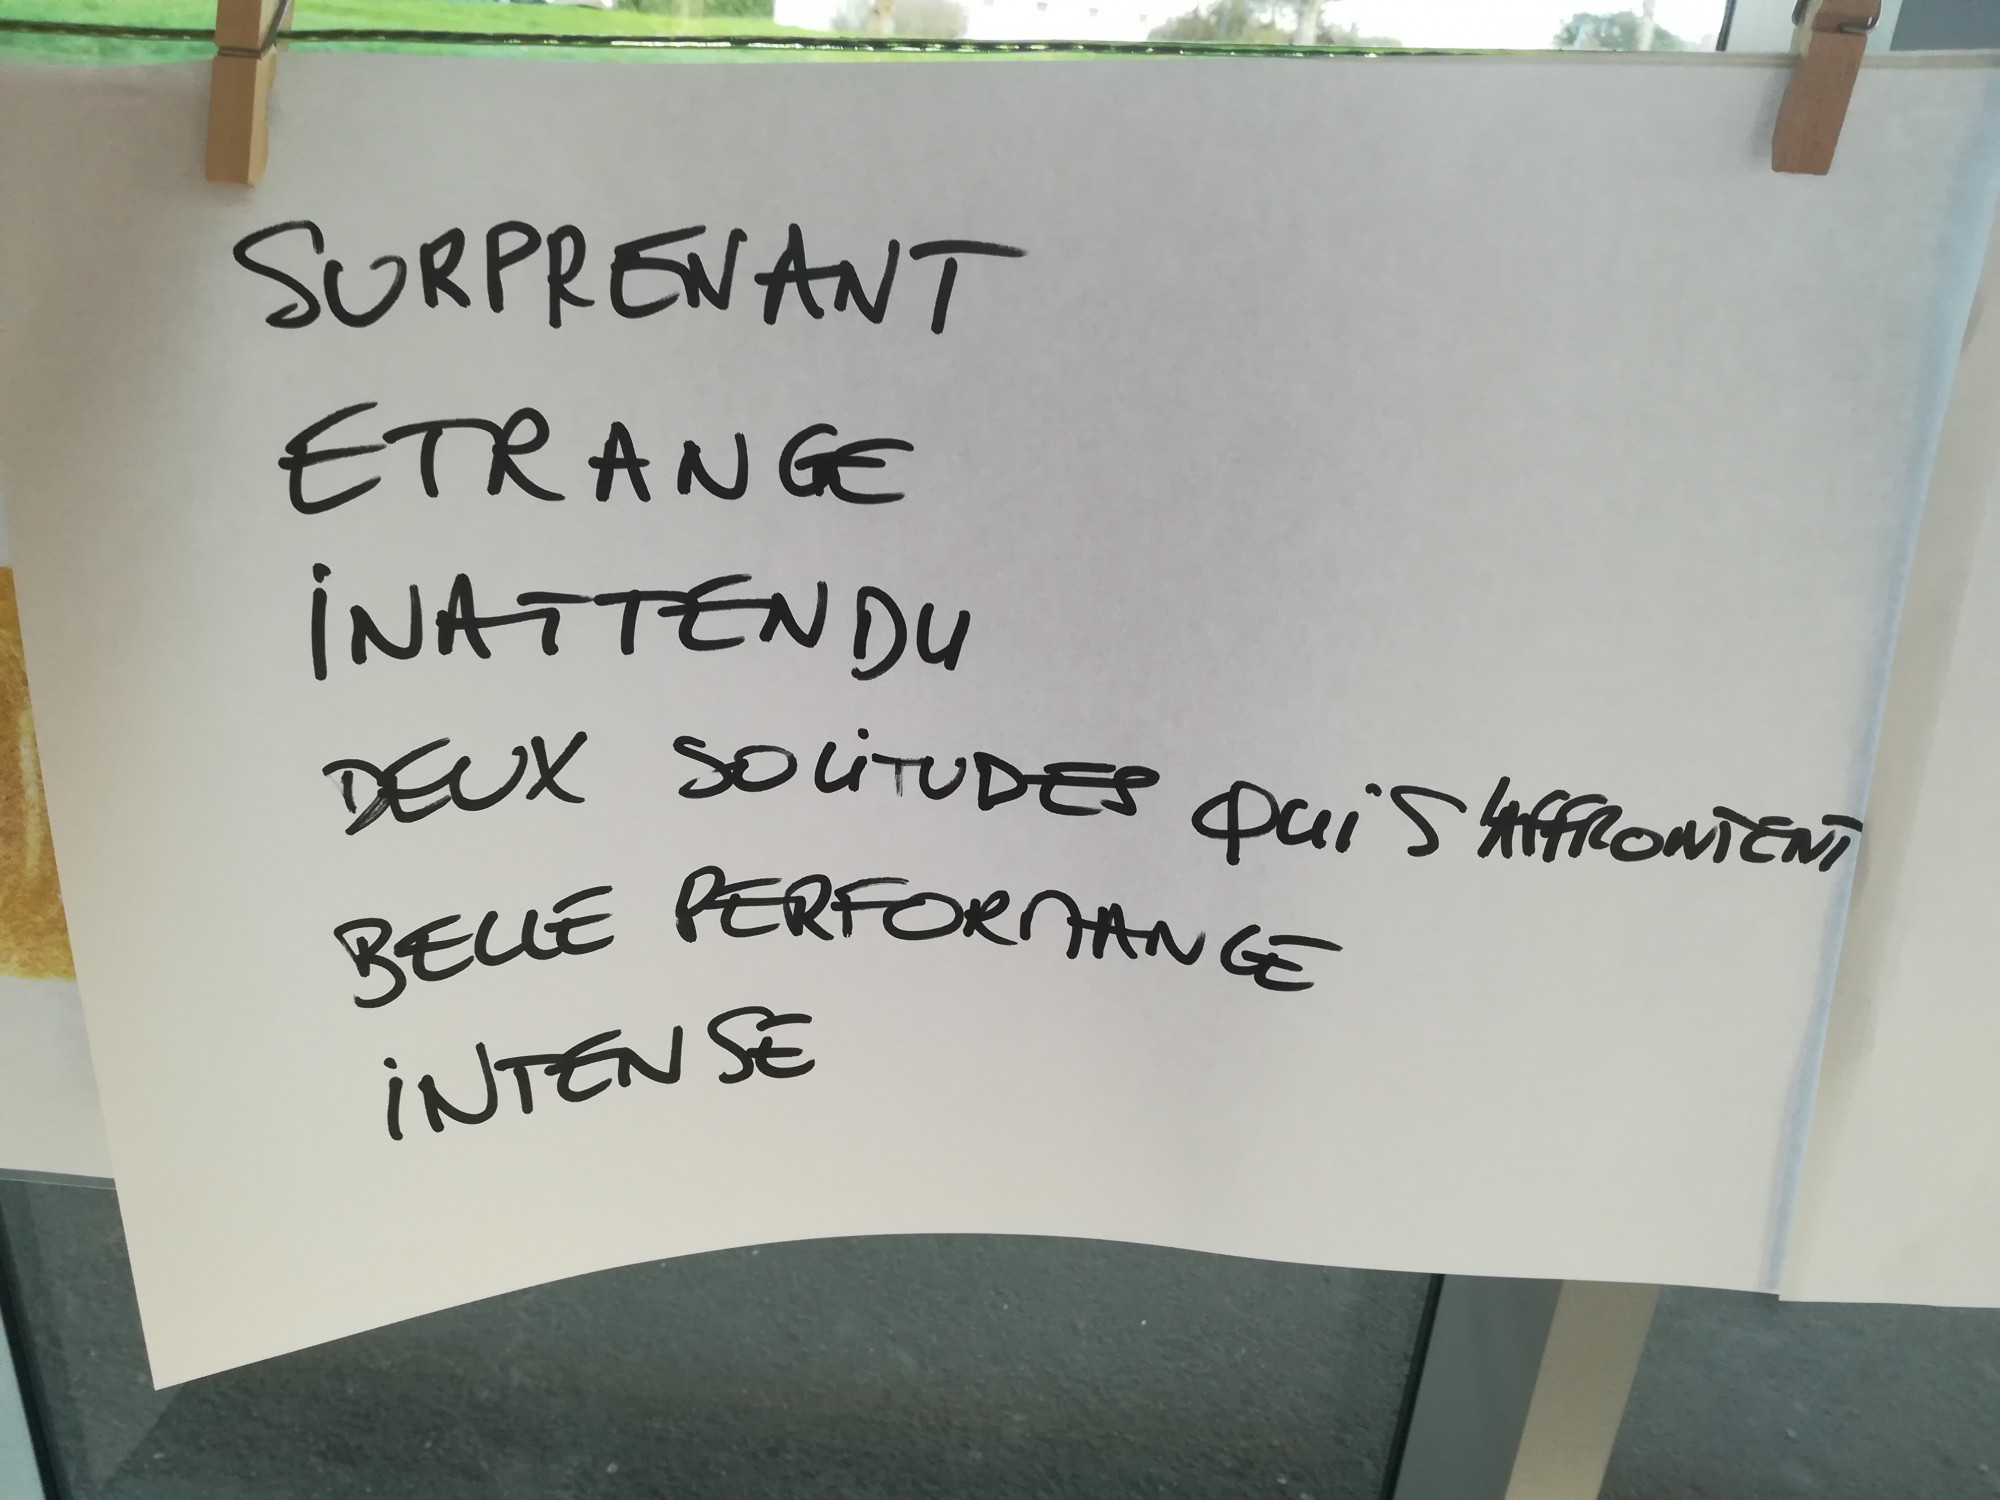 SURPRENANT
ETRANGE
iNATTENDU
DEUX SOLiTUDES QUi S'AFFRONTENT
BELLE PERFORMANCE
iNTENSE